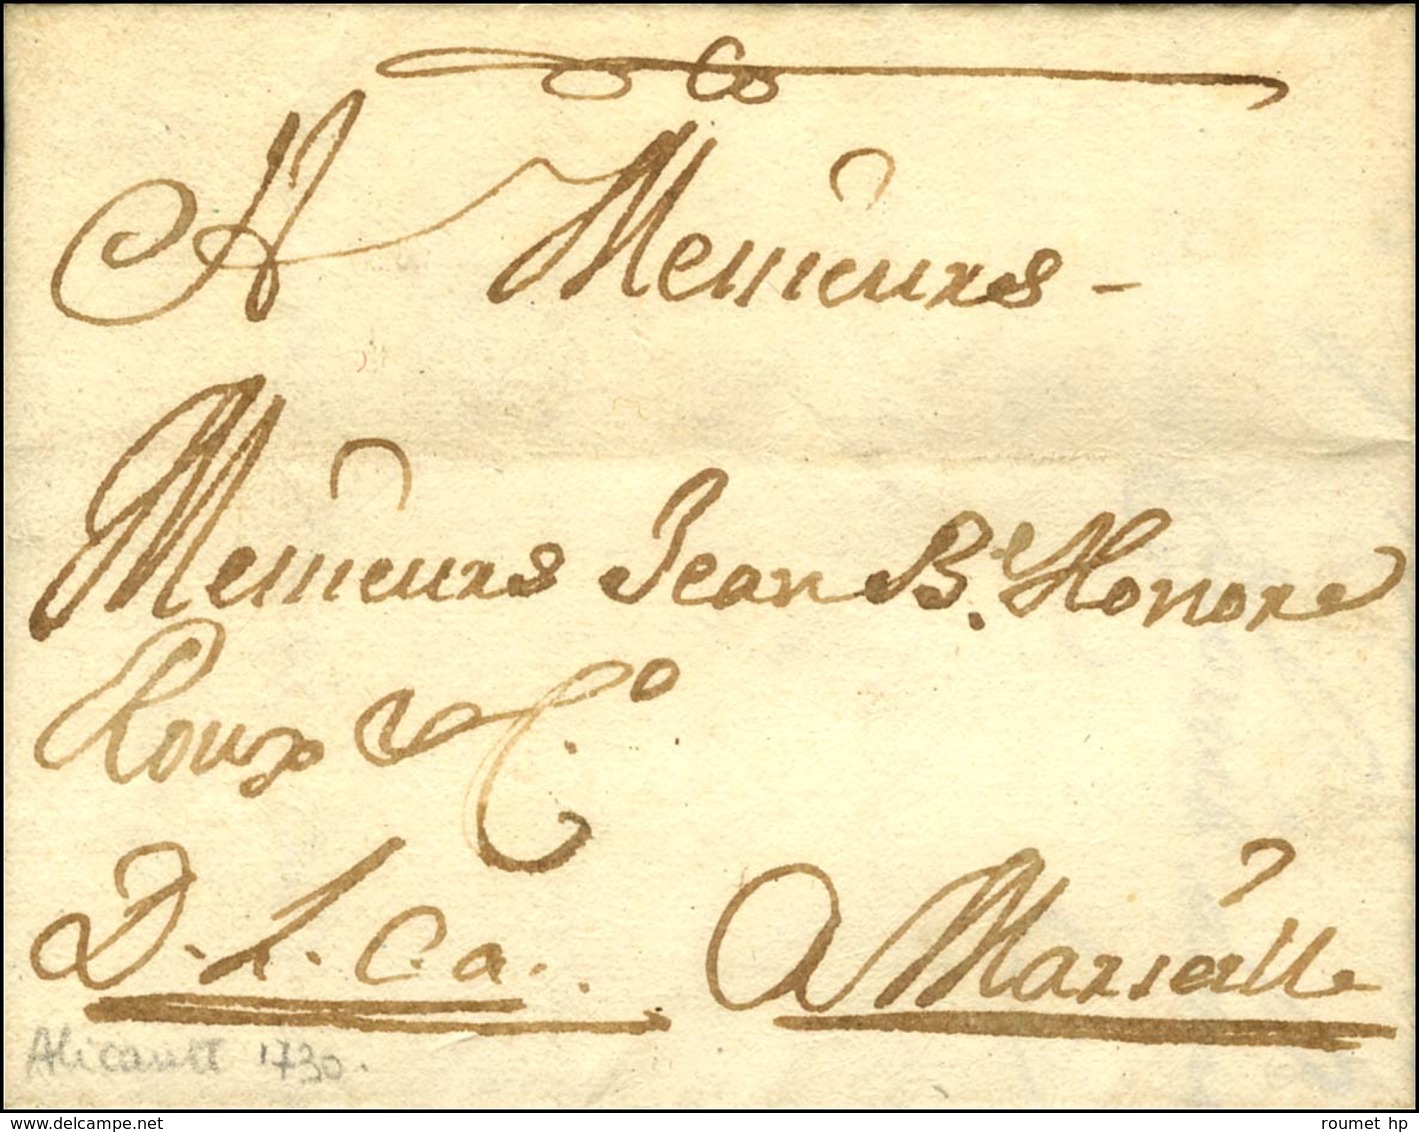 A Messieurs -
Messieurs Jean B.e Honore
Roux & C.o
D. L. C. a. A Marseille
Alicante 1730.
delcampe.net
roumet hp